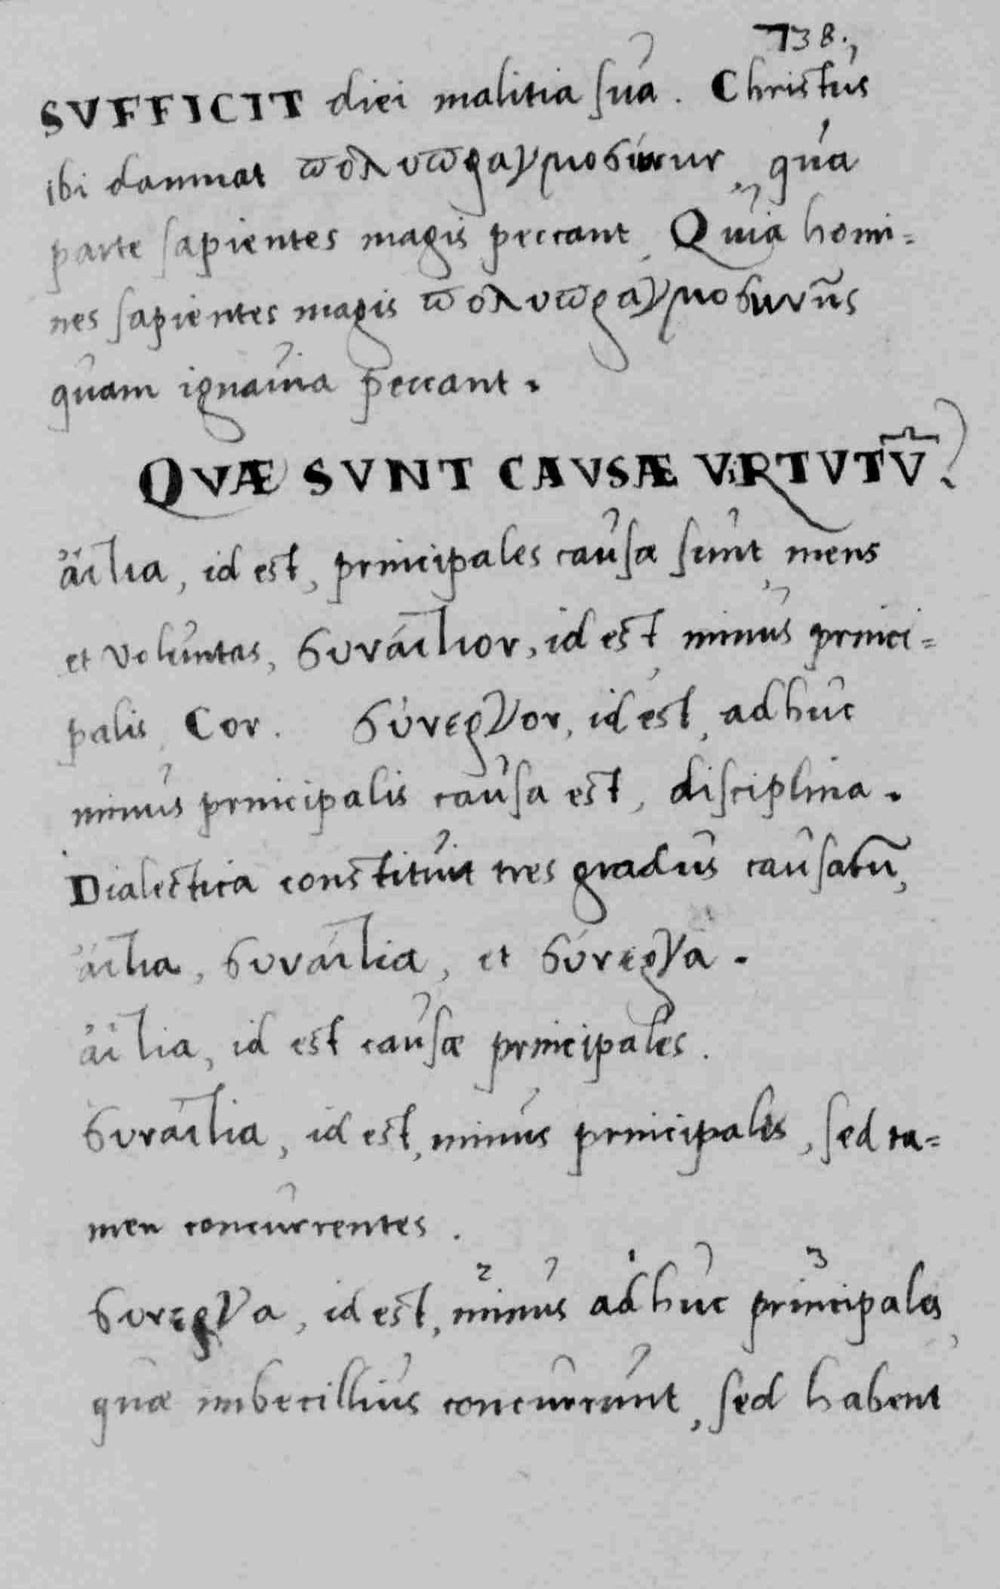 738.
SVFFICIT diei malitia sua. Christus
ibi damnat πολυπραγμοσύνην, qua
parte sapientes magis peccant, Quia homi=
nes sapientes magis πολυπραγμοσυνῃ̃s
quam ignauia peccant.
QVÆ SVNT CAVSÆ VIRTVTV̄?
ἄιτια, id est, principales causæ sunt, mens
et voluntas, συνάιτιον, id est, minus princi=
palis, Cor. σύνεργον, id est, adhuc
minus principalis causa est, disciplina.
Dialectica constituit tres gradus causarū,
ἄιτια, συνάιτια, et σύνεργα.
ἄιτια, id est causæ principales.
συνάιτια, id est, minus principales, sed ta=
men concurrentes.
συνεργα, id est, minus adhuc principales,
quæ imbecillius concurrunt, sed habent